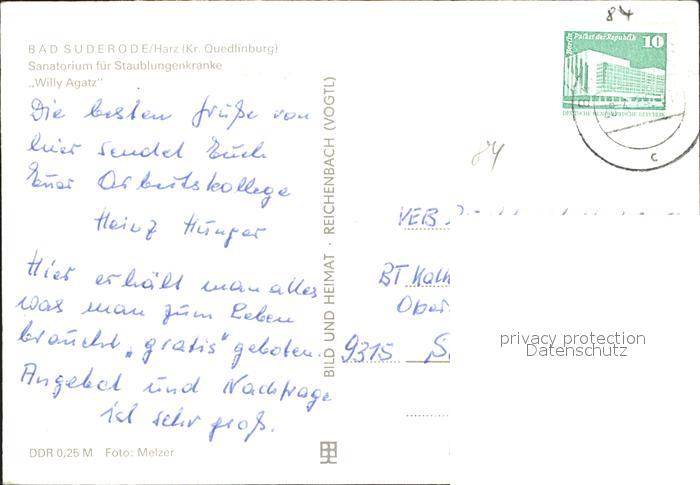 84
BAD SUDERODE/Harz (Kr. Quedlinburg)
Sanatorium für Staublungenkranke
„Willy Agatz"
Berlin Palast der Republik 10
Die besten Grüße von
hier sendet Euch
Euer Arbeitskollege
Heinz Hunger
Hier erhält man alles
was man zum Leben
braucht „gratis" geboten.
Angebot und Nachfrage
ist sehr groß.
DDR 0,25 M Foto: Melzer
BILD UND HEIMAT · REICHENBACH (VOGTL)
84
VEB
BT Kalk
Ober
9315 S
privacy protection
Datenschutz